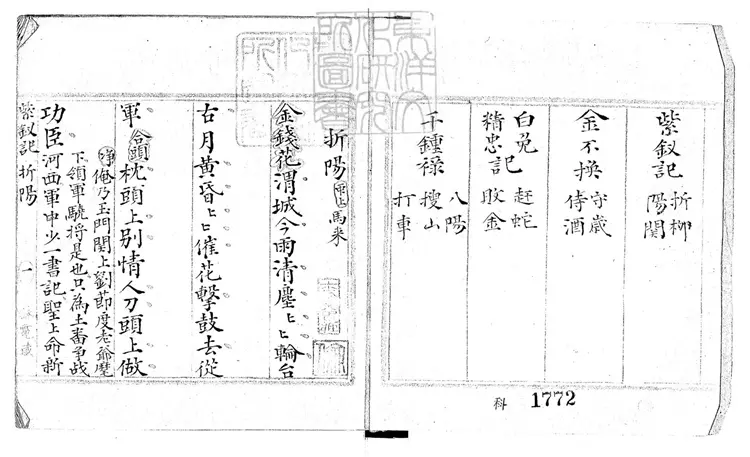 紫釵記 折柳 陽關
金不換 守歲 侍酒
白兔記 赶蛇
精忠記 敗金
千鍾祿 八陽 搜山 打車
科 1772
折陽 馬來
金錢花渭城今雨清塵〻〻輪台
古月黃昏〻〻催花擊鼓去從
軍 合頭 枕頭上別情人刀頭上做
淨 俺乃玉門關上劉節度老爺麾
下領軍驍將是也只為土番爭战
功臣河西軍中少一書記聖上命新
紫釵記 折陽 一